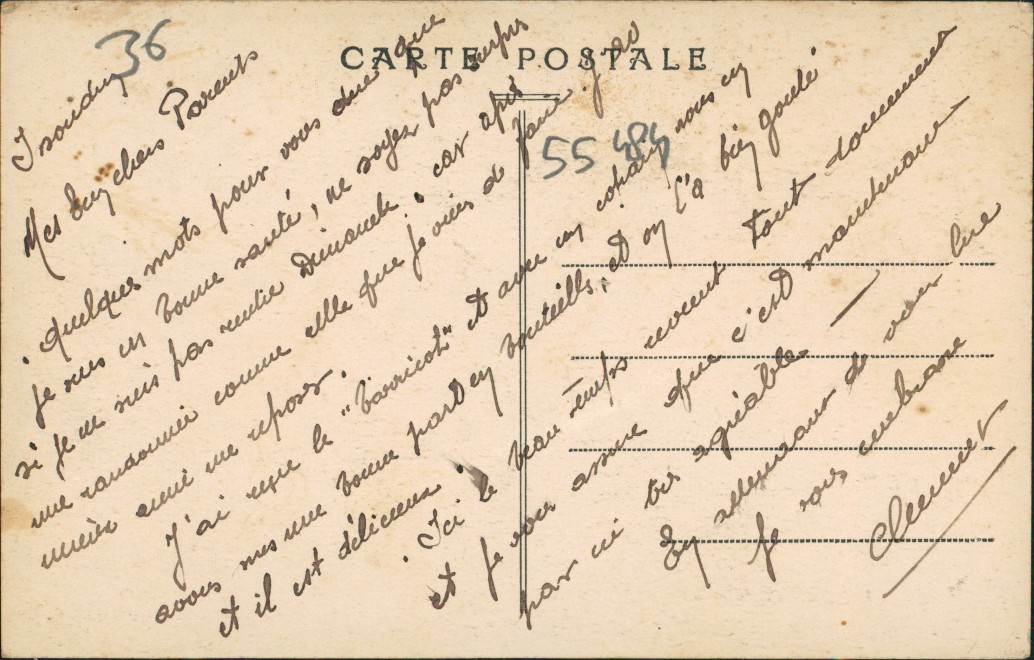 CARTE POSTALE
36
55 484
Issoudun
Mes biens chers Parents
quelques mots pour vous dire que
je suis en bonne santé, ne soyez pas surpris
si je ne suis pas rentré Dimanche, car après
une randonnée comme celle que je viens de faire j'ai
aimé me reposer.
J'ai reçu le "barricot" et avec un copain nous en
avons mis une bonne part en bouteilles, et on l'a bien gouté
et il est délicieux.
Ici le beau temps revient tout doucement
et je vous assure que c'est maintenant
par ici très agréable.
En attendant de vous lire
je vous embrasse
Clément